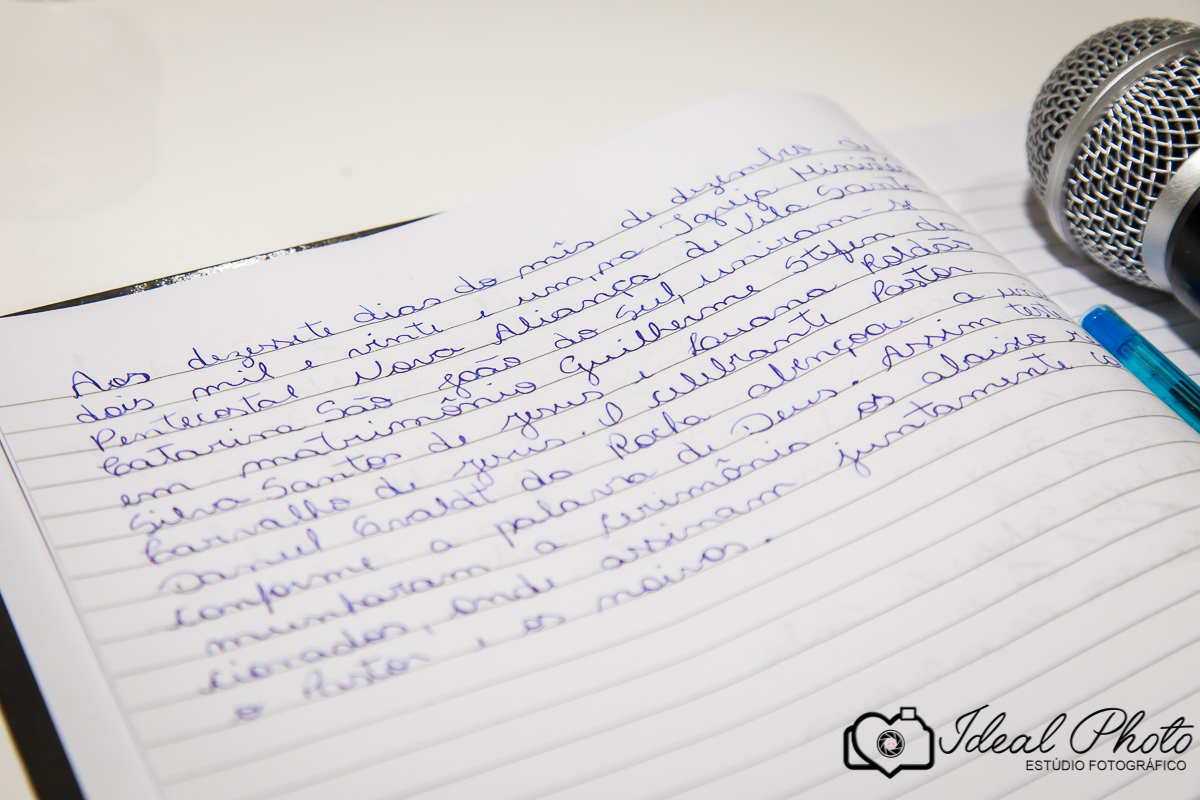 Aos dezessete dias do mês de dezembro de
dois mil e vinte e um, na Igreja Ministér
Pentecostal Nova Aliança de Vila Santa
Catarina São João do Sul, uniram-se
em matrimônio Guilherme Stefen da
Silva Santos de Jesus e Lauana Roldão
Carvalho de Jesus. O celebrante Pastor
Daniel Evaldt da Rocha abençoou a uni
conforme a palavra de Deus. Assim teste
munharam a cerimônia os abaixo re
cionados, onde assinam juntamente co
o Pastor e os noivos.
Ideal Photo
ESTÚDIO FOTOGRÁFICO